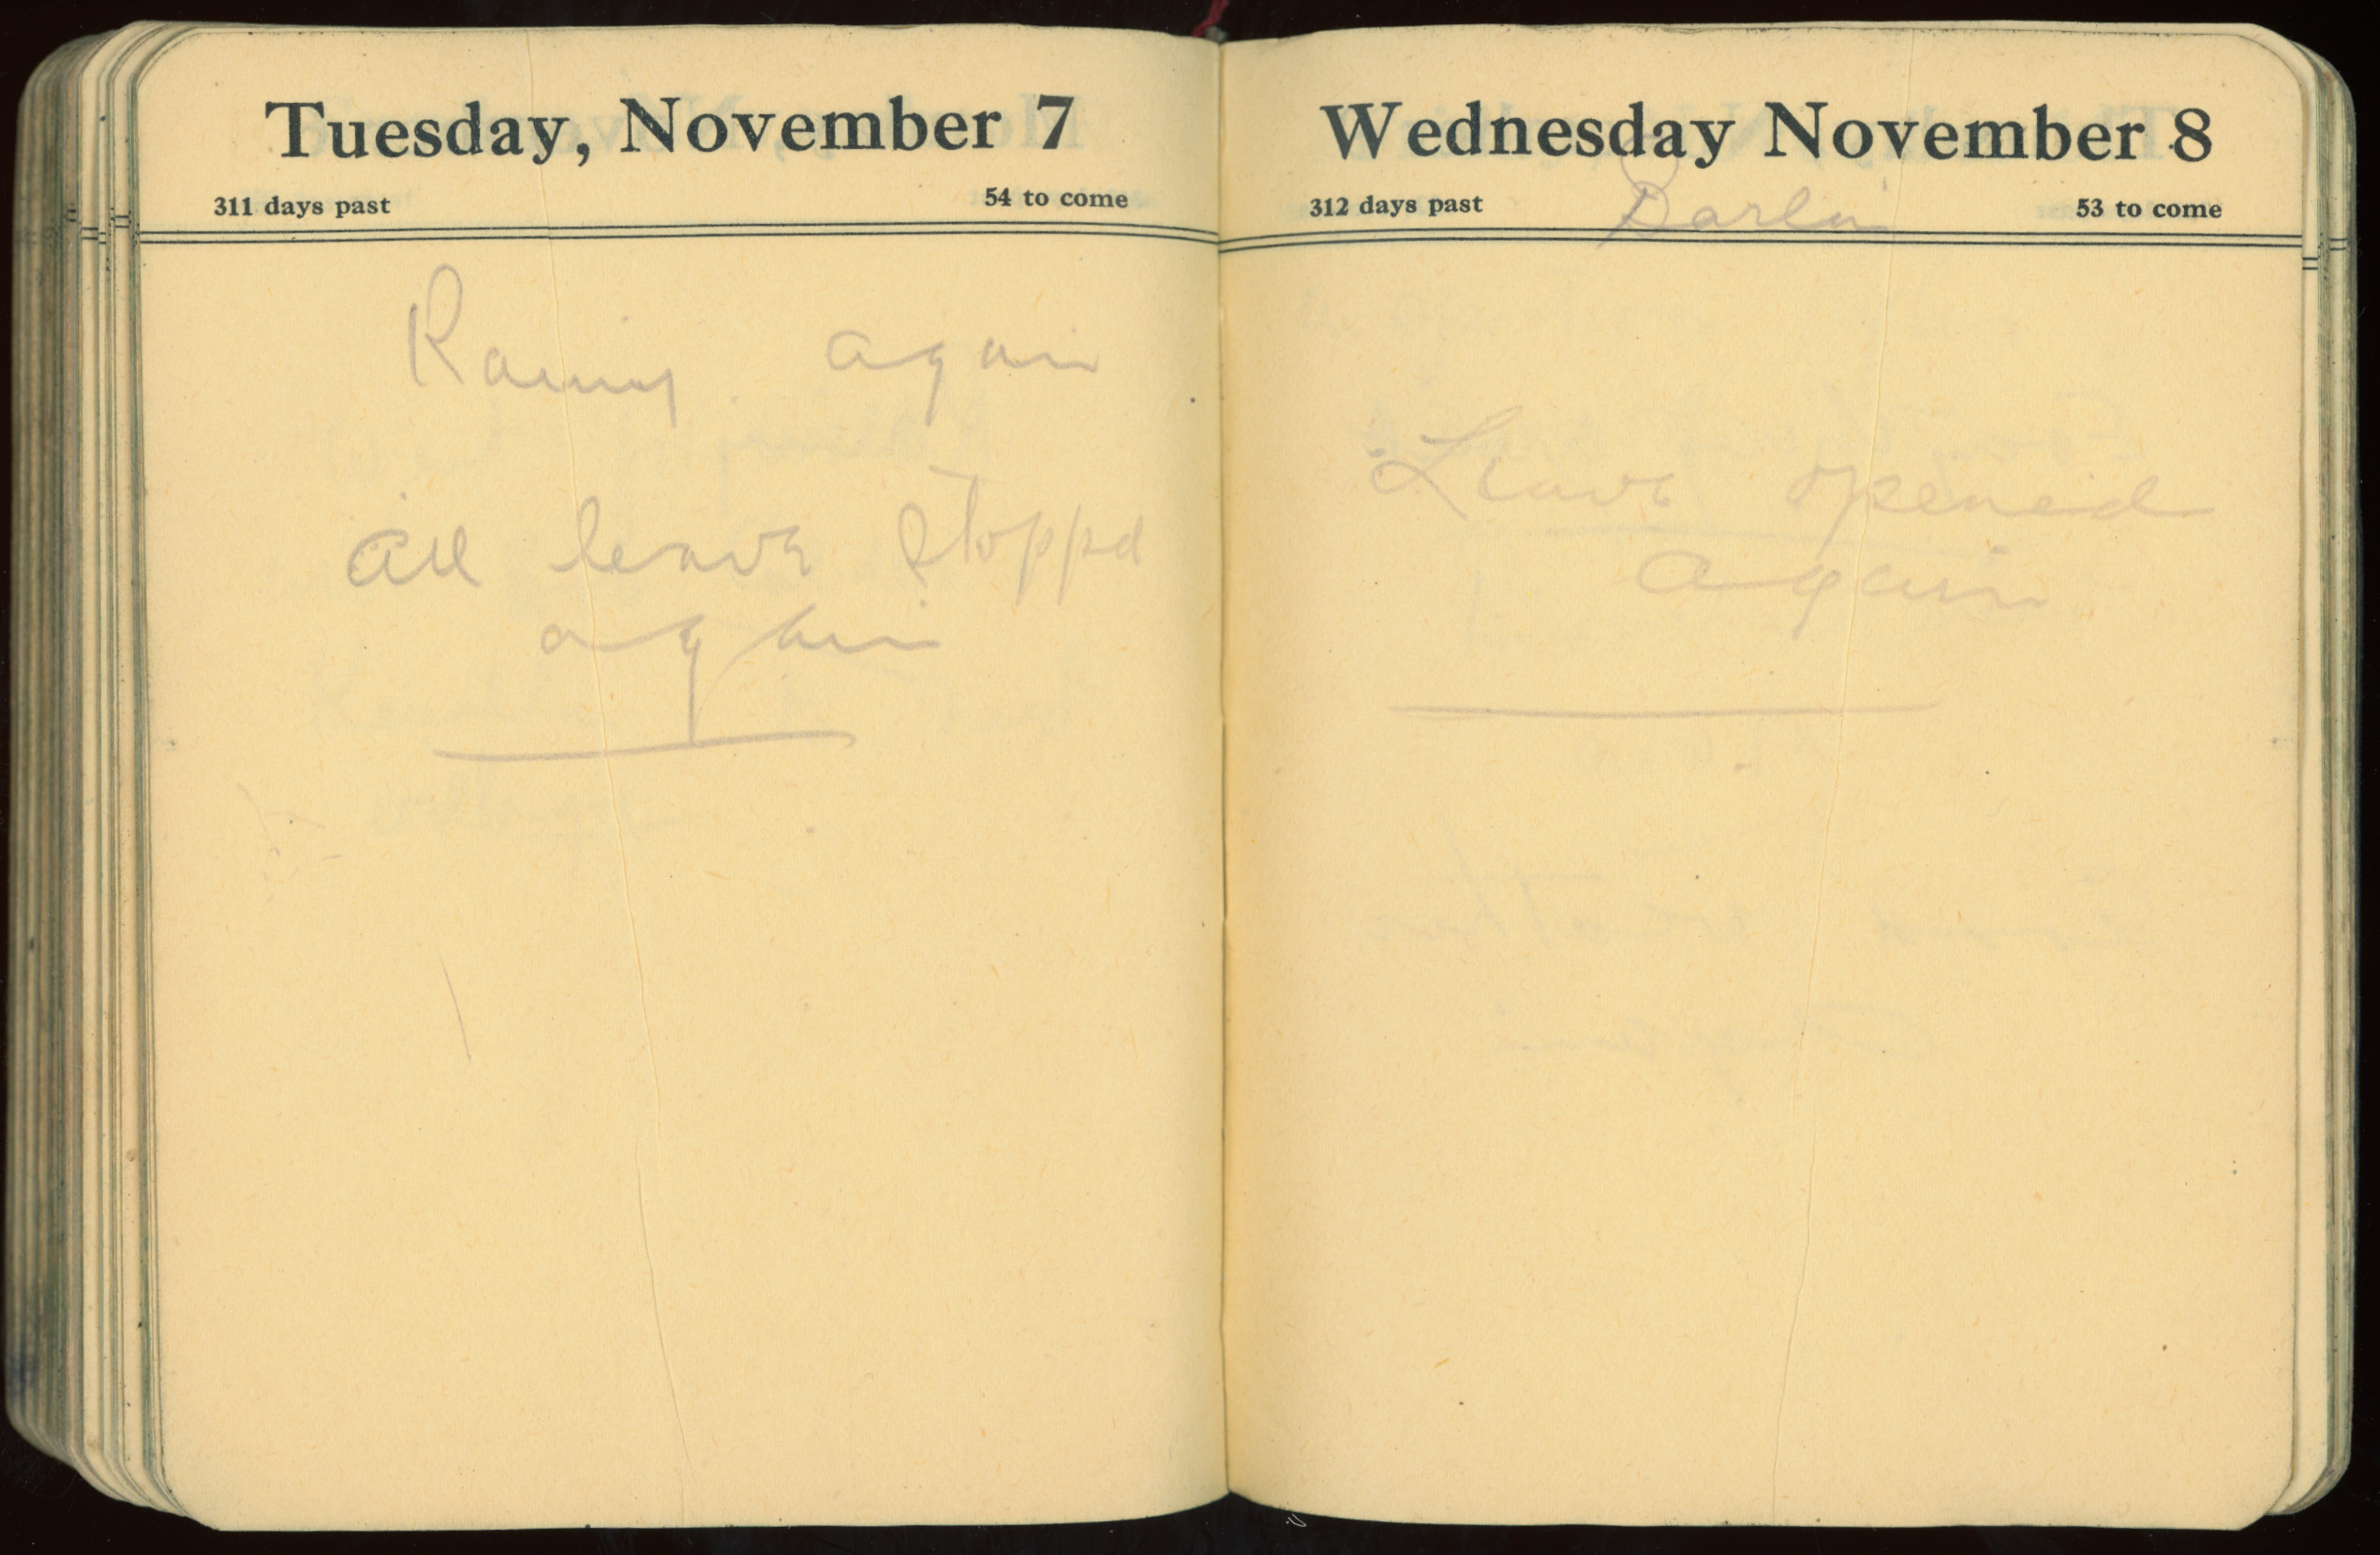 Tuesday, November 7
311 days past 54 to come
Rainy again
all leave stoppd
again
Wednesday November 8
312 days past 53 to come
Leave opened
again